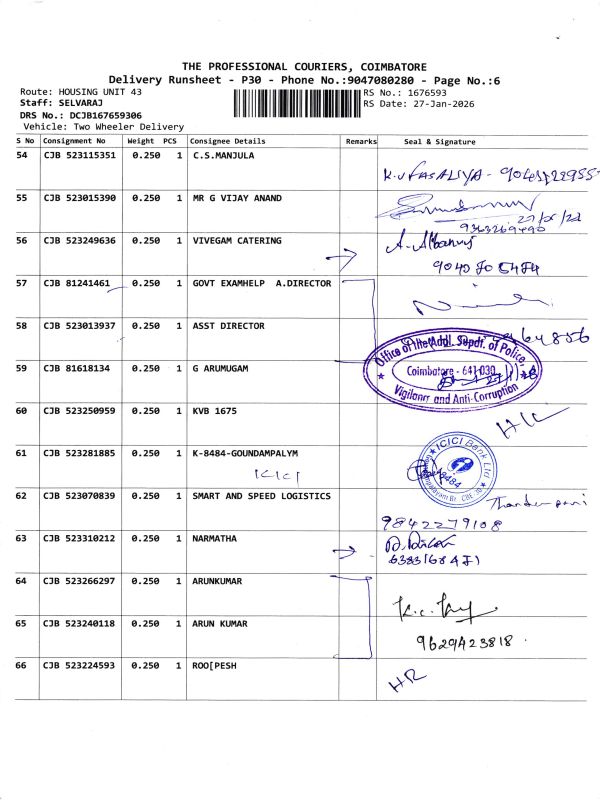 THE PROFESSIONAL COURIERS, COIMBATORE
Delivery Runsheet - P30 - Phone No.:9047080280 - Page No.:6
Route: HOUSING UNIT 43
Staff: SELVARAJ
DRS No.: DCJB167659306
Vehicle: Two Wheeler Delivery
RS No.: 1676593
RS Date: 27-Jan-2026
S No Consignment No Weight PCS Consignee Details Remarks Seal & Signature
54 CJB 523115351 0.250 1 C.S.MANJULA
55 CJB 523015390 0.250 1 MR G VIJAY ANAND
9363269490
56 CJB 523249636 0.250 1 VIVEGAM CATERING
57 CJB 81241461 0.250 1 GOVT EXAMHELP A.DIRECTOR
58 CJB 523013937 0.250 1 ASST DIRECTOR
Office of the Addl. Supdt. of Police,
Coimbatore - 641 030
Vigilance and Anti-Corruption
59 CJB 81618134 0.250 1 G ARUMUGAM
60 CJB 523250959 0.250 1 KVB 1675
61 CJB 523281885 0.250 1 K-8484-GOUNDAMPALYM
ICICI
ICICI Bank Ltd
62 CJB 523070839 0.250 1 SMART AND SPEED LOGISTICS
9842279108
63 CJB 523310212 0.250 1 NARMATHA
64 CJB 523266297 0.250 1 ARUNKUMAR
65 CJB 523240118 0.250 1 ARUN KUMAR
9629423818
66 CJB 523224593 0.250 1 ROO[PESH
HR